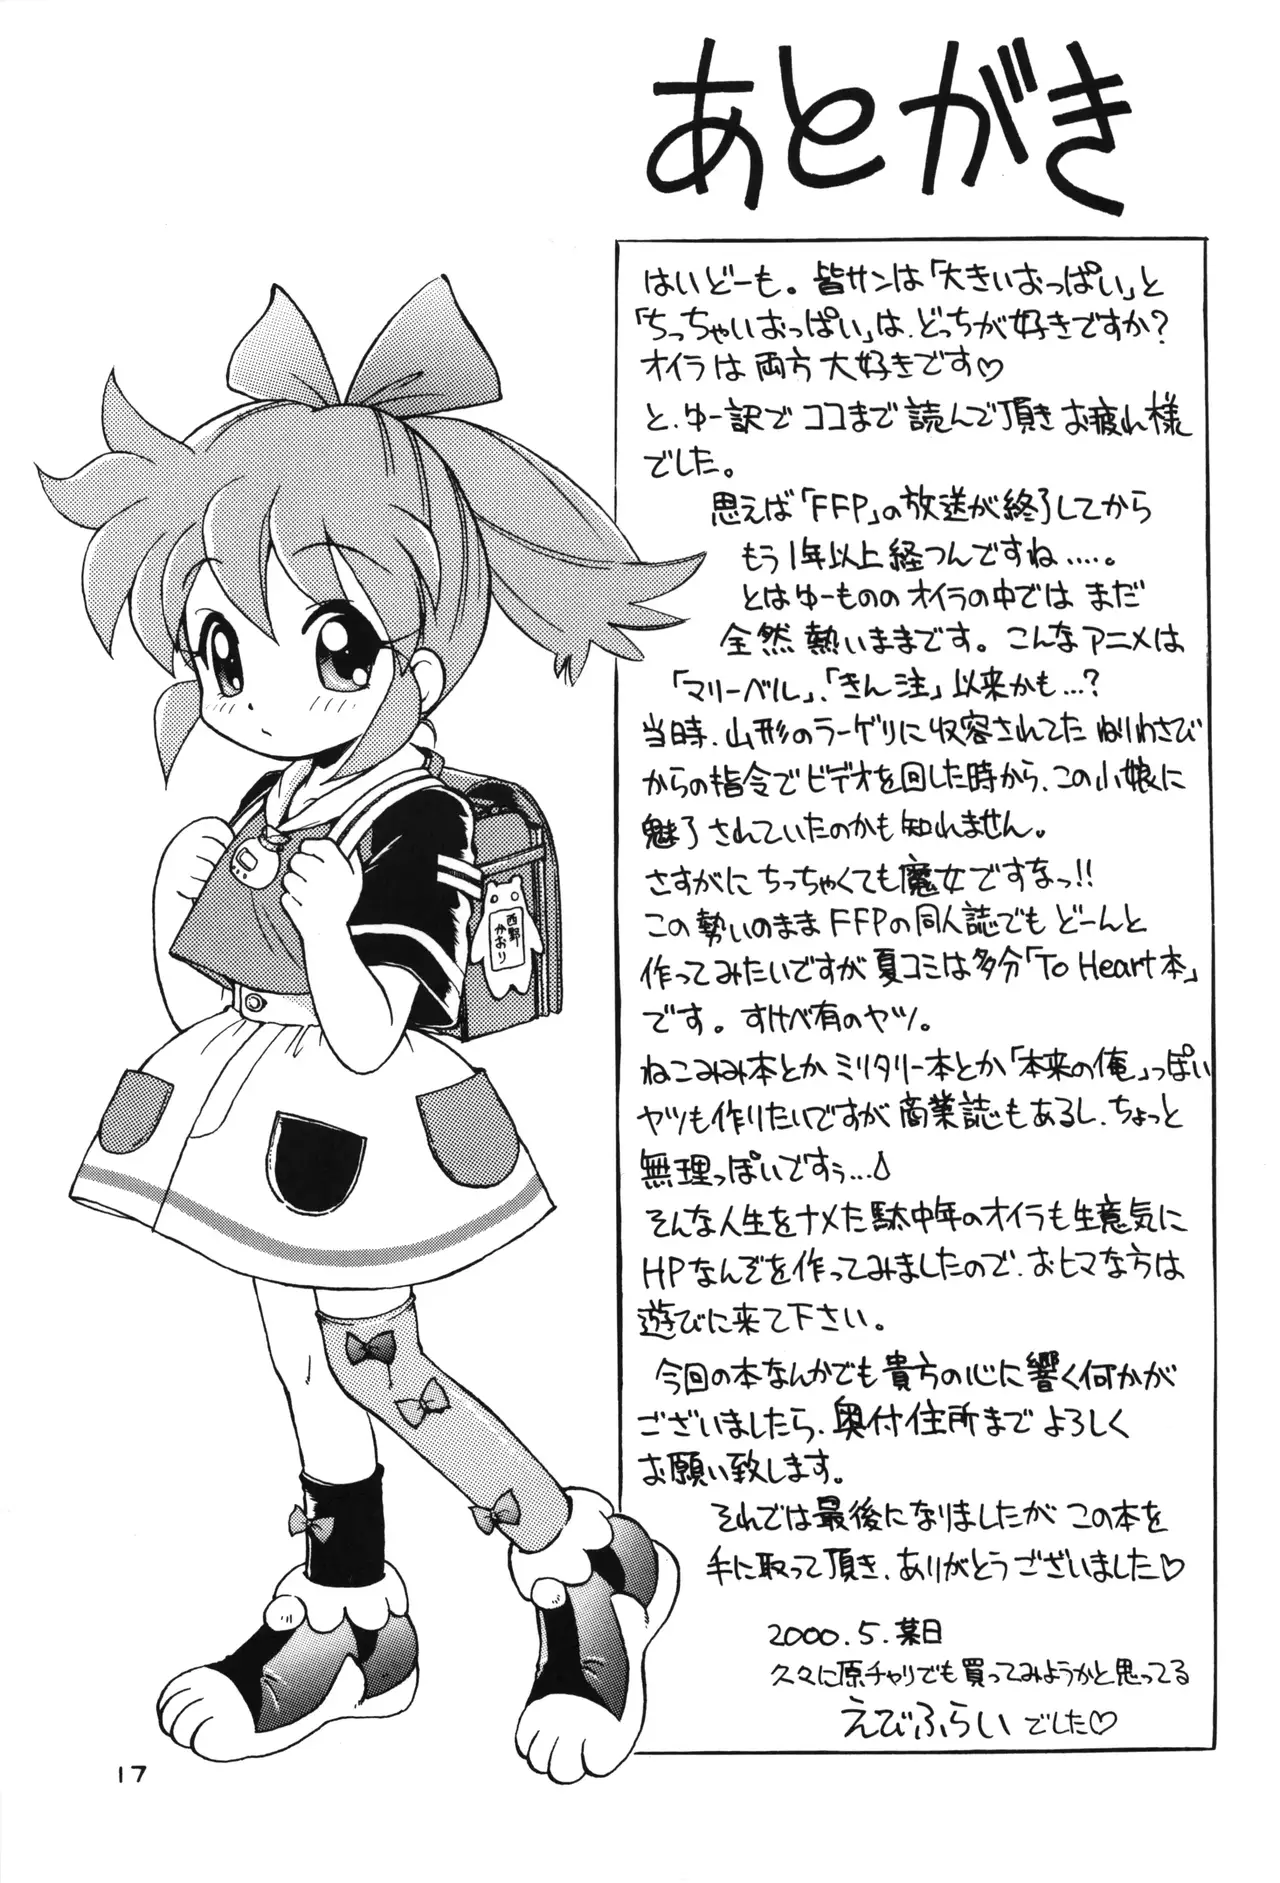 あとがき
はいどーも。皆サンは「大きいおっぱい」と
「ちっちゃいおっぱい」は、どっちが好きですか?
オイラは両方大好きです♡
と、ゆー訳でココまで読んで頂きお疲れ様
でした。
思えば「FFP」の放送が終了してから
もう1年以上経つんですね.....。
とはゆーもののオイラの中ではまだ
全然熱いままです。こんなアニメは
「マリーベル」、「きん注」以来かも...?
当時、山形のラーゲリに収容されてたねりわさび
からの指令でビデオを回した時から、この小娘に
魅了されていたのかも知れません。
さすがにちっちゃくても魔女ですなっ!!
この勢いのままFFPの同人誌でもどーんと
作ってみたいですが夏コミは多分「To Heart本」
です。すけべ有のヤツ。
ねこみみ本とかミリタリー本とか「本来の俺」っぽい
ヤツも作りたいですが商業誌もあるし、ちょっと
無理っぽいですぅ...
そんな人生をナメた駄中年のオイラも生意気に
HPなんぞを作ってみましたので、おヒマな方は
遊びに来て下さい。
今回の本なんかでも貴方の心に響く何かが
ございましたら、奥付住所までよろしく
お願い致します。
それでは最後になりましたがこの本を
手に取って頂き、ありがとうございました♡
2000.5.某日
久々に原チャリでも買ってみようかと思ってる
えびふらいでした♡
西野
かおり
17